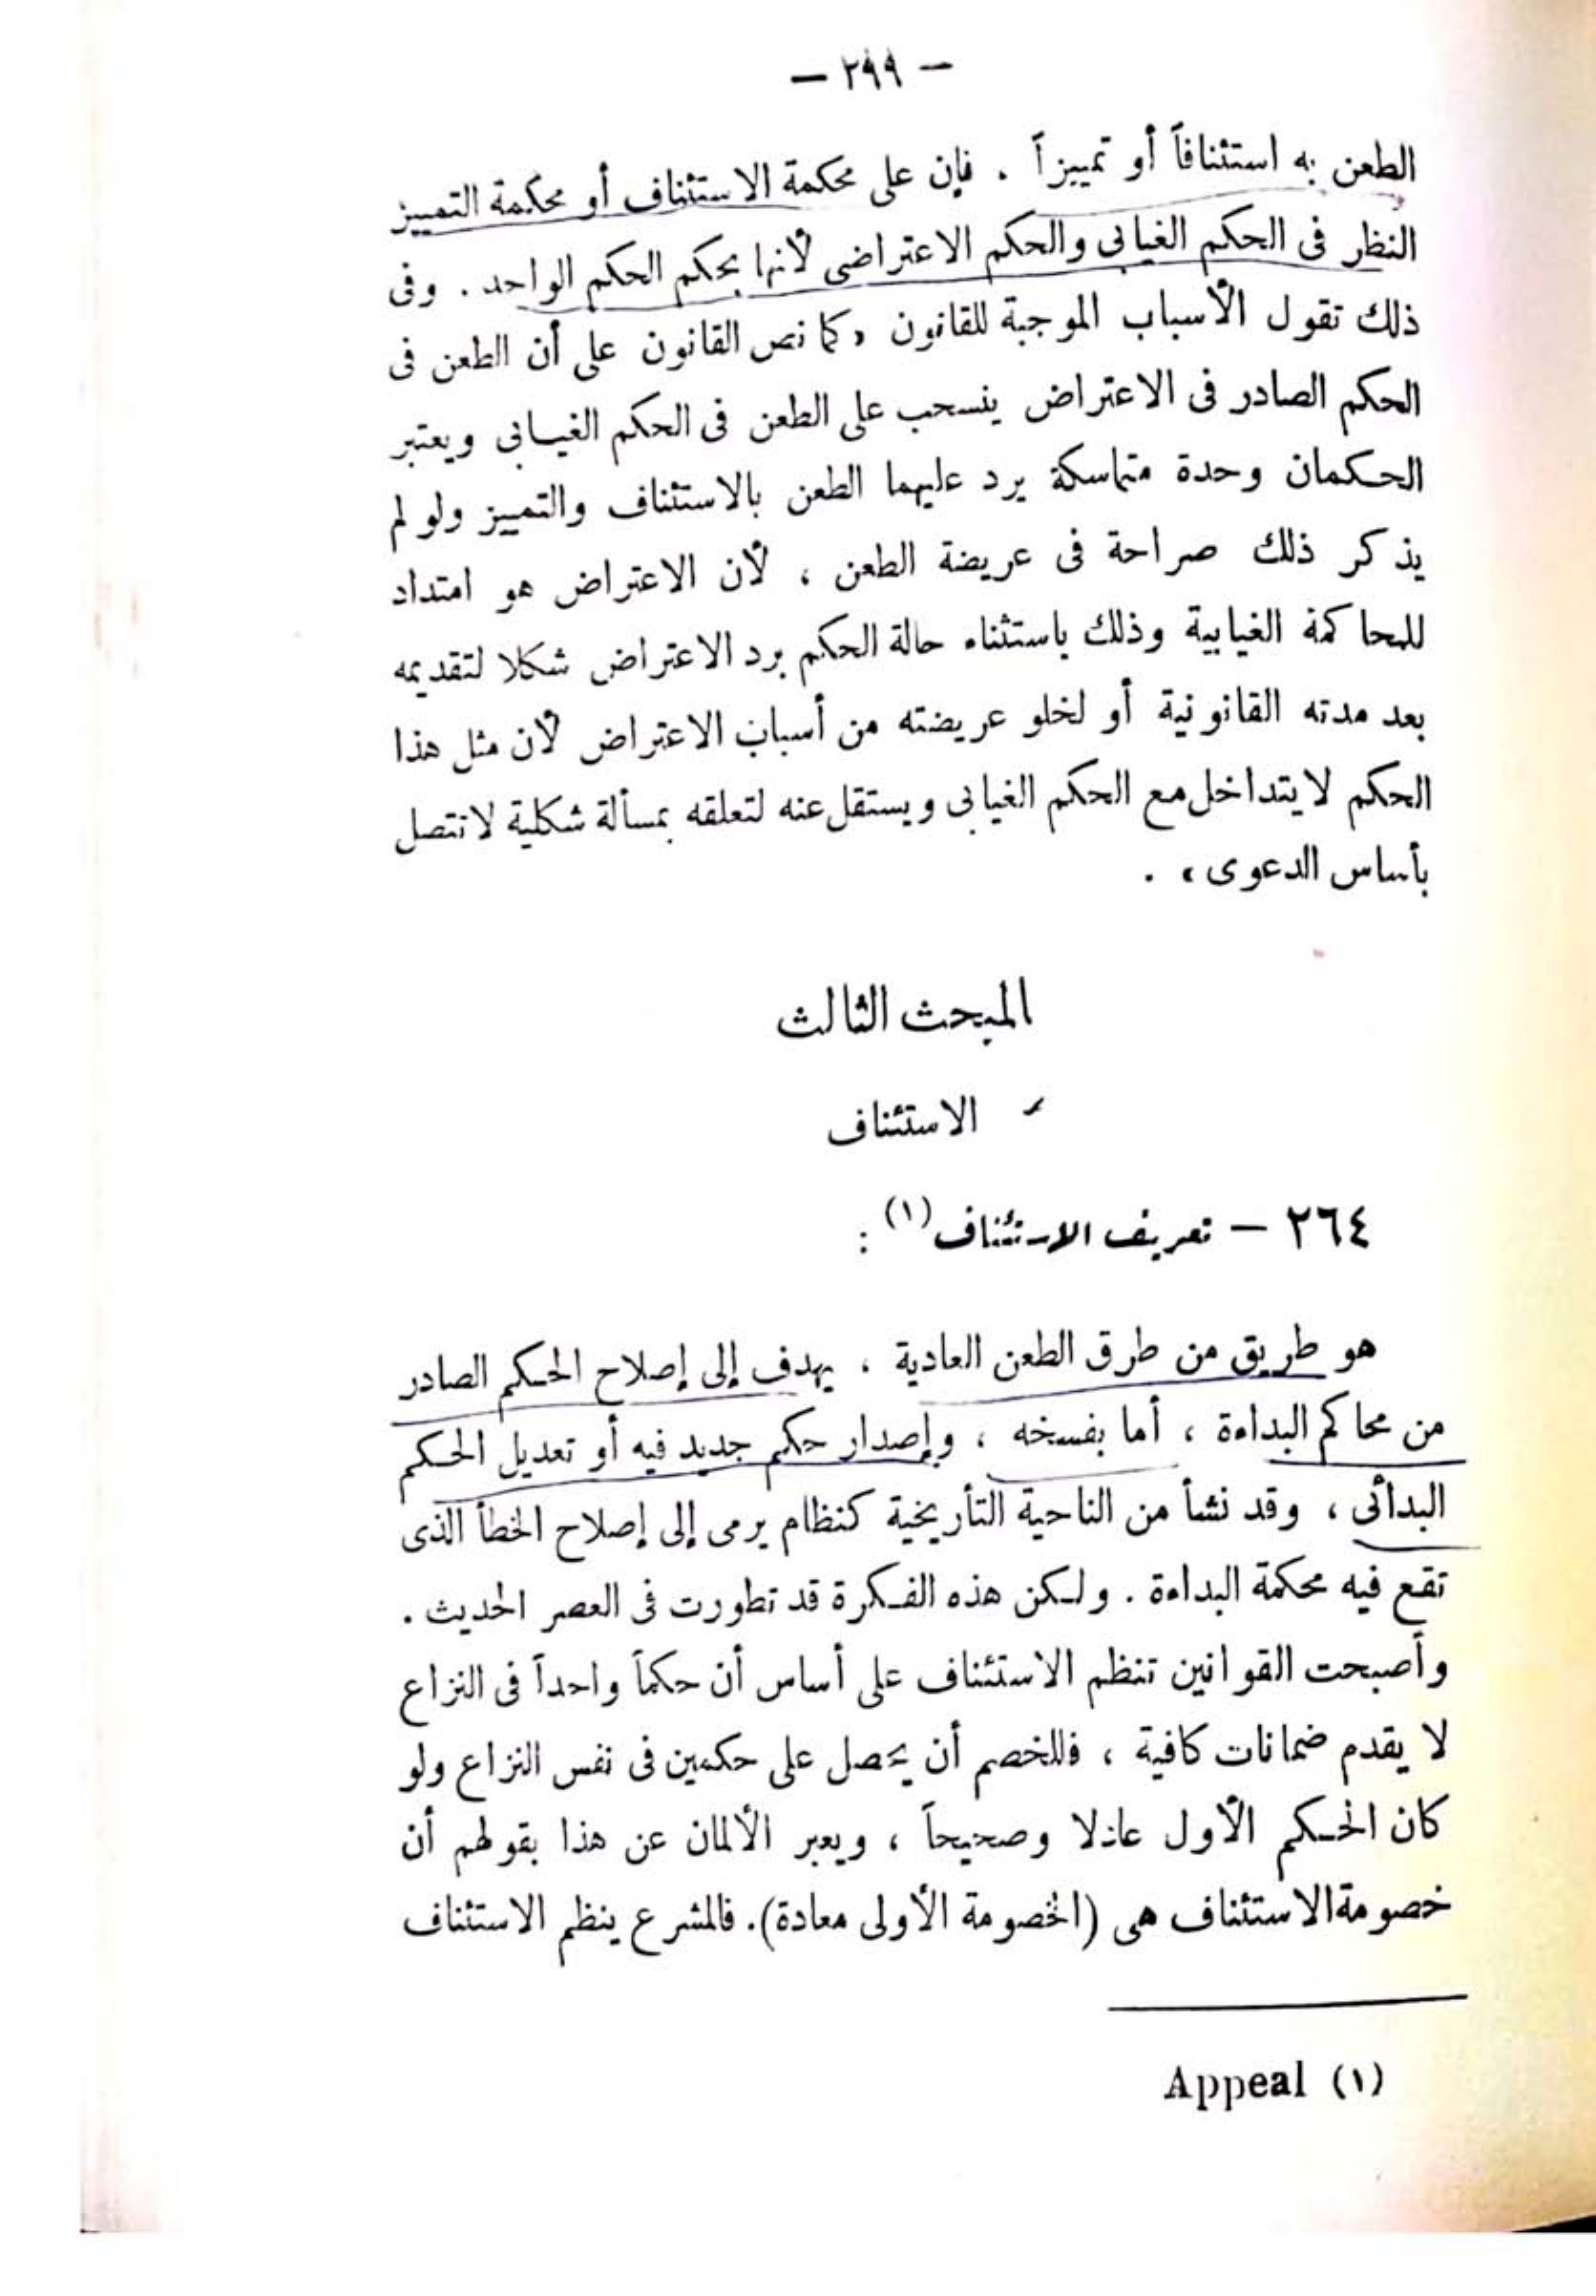 — ٢٩٩ —
الطعن به استئنافاً أو تمييزاً . فإن على محكمة الاستئناف أو محكمة التمييز
النظر فى الحكم الغيابى والحكم الاعتراضى لأنها بحكم الحكم الواحد . وفى
ذلك تقول الأسباب الموجبة للقانون « كما نص القانون على أن الطعن فى
الحكم الصادر فى الاعتراض ينسحب على الطعن فى الحكم الغيابى ويعتبر
الحكمان وحدة متماسكة يرد عليهما الطعن بالاستئناف والتمييز ولو لم
يذكر ذلك صراحة فى عريضة الطعن ، لأن الاعتراض هو امتداد
للمحاكمة الغيابية وذلك باستثناء حالة الحكم برد الاعتراض شكلا لتقديمه
بعد مدته القانونية أو لخلو عريضته من أسباب الاعتراض لأن مثل هذا
الحكم لا يتداخل مع الحكم الغيابى ويستقل عنه لتعلقه بمسألة شكلية لا تتصل
بأساس الدعوى » .
المبحث الثالث
الاستئناف
٢٦٤ — تعريف الاستئناف (١) :
هو طريق من طرق الطعن العادية ، يهدف إلى إصلاح الحكم الصادر
من محاكم البداءة ، أما بفسخه ، وإصدار حكم جديد فيه أو تعديل الحكم
البدائى ، وقد نشأ من الناحية التأريخية كنظام يرمى إلى إصلاح الخطأ الذى
تقع فيه محكمة البداءة . ولكن هذه الفكرة قد تطورت فى العصر الحديث .
وأصبحت القوانين تنظم الاستئناف على أساس أن حكماً واحداً فى النزاع
لا يقدم ضمانات كافية ، فللخصم أن يحصل على حكمين فى نفس النزاع ولو
كان الحكم الأول عادلا وصحيحاً ، ويعبر الألمان عن هذا بقولهم أن
خصومة الاستئناف هى (الخصومة الأولى معادة). فالمشرع ينظم الاستئناف
(١) Appeal